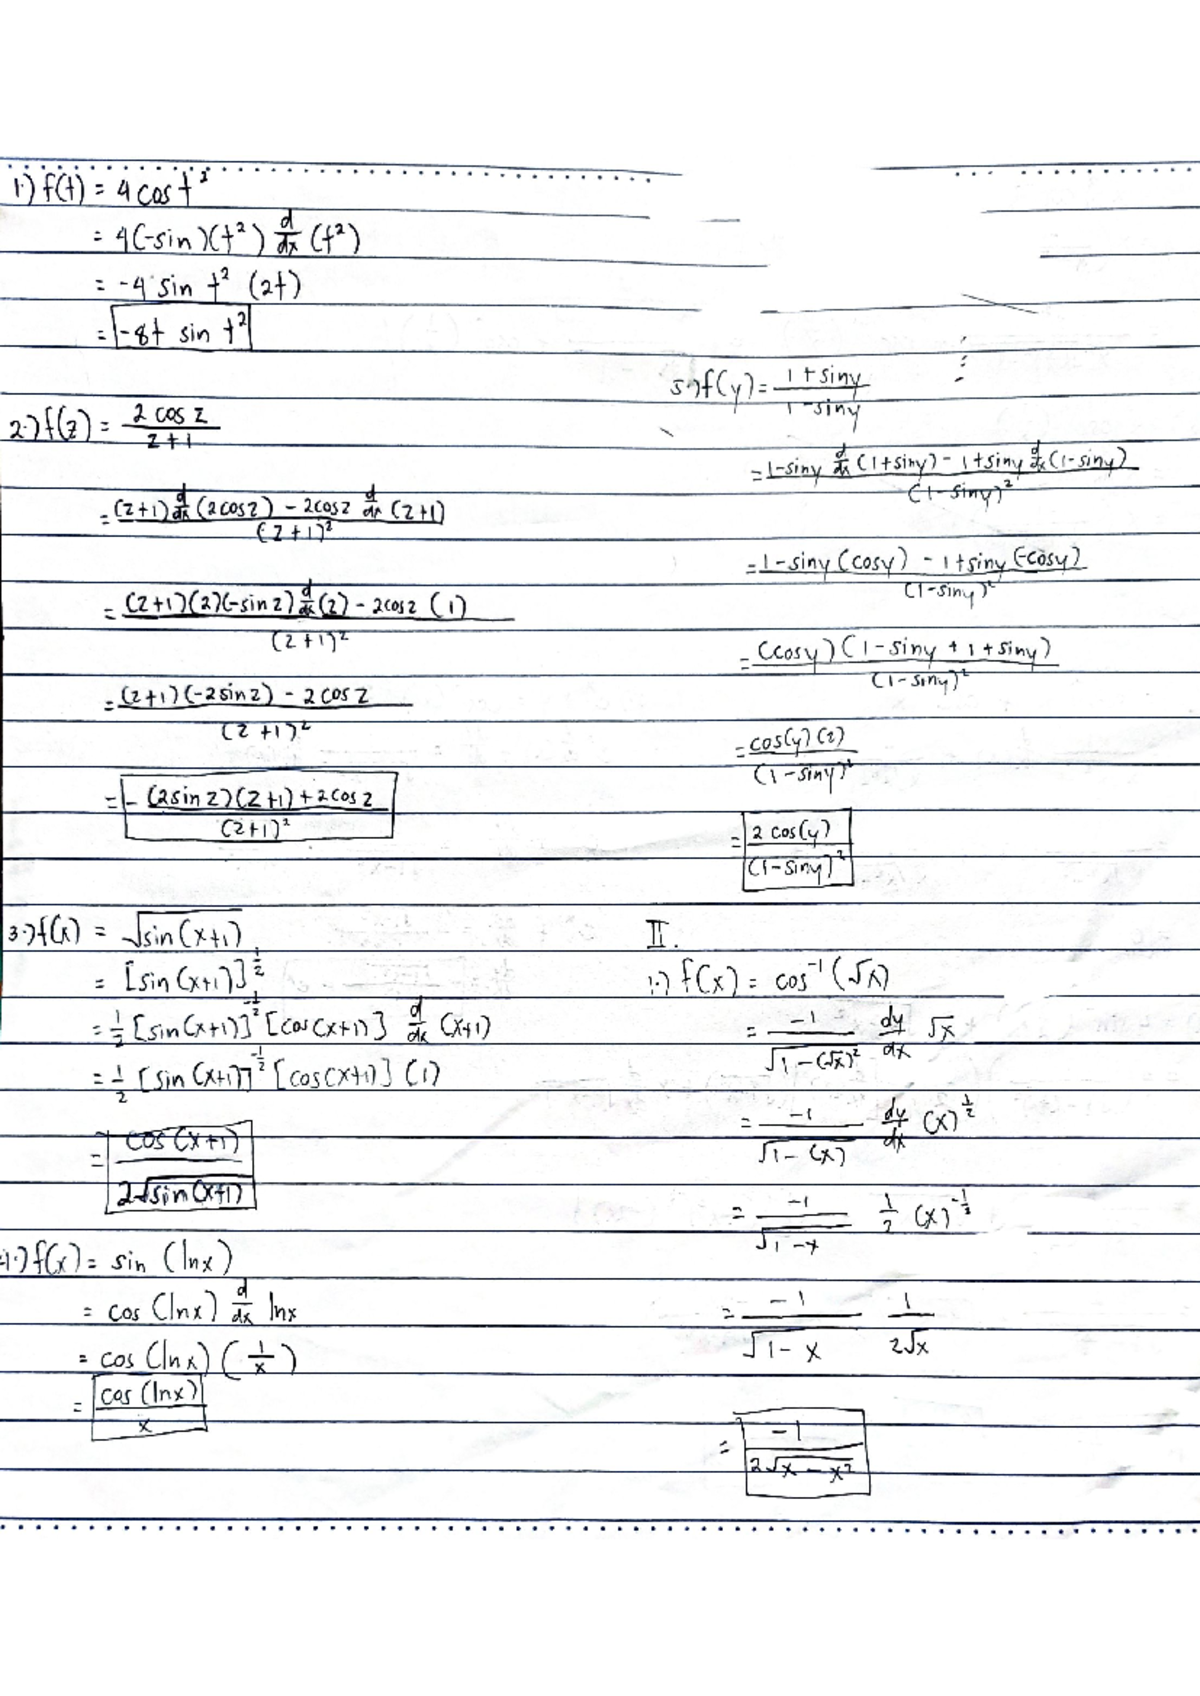 1.) f(t) = 4 cos t²
= 4(-sin)(t²) d/dx (t²)
= -4 sin t² (2t)
= -8t sin t²
2.) f(z) = 2 cos z / z+1
= (z+1) d/dx (2cosz) - 2cosz d/dx (z+1) / (z+1)²
= (z+1)(2)(-sin z) d/dx (z) - 2cosz (1) / (z+1)²
= (z+1)(-2sinz) - 2cosz / (z+1)²
= - (2sin z)(z+1) + 2cosz / (z+1)²
3.) f(x) = √sin(x+1)
= [sin(x+1)]^1/2
= 1/2 [sin(x+1)]^-1/2 [cos(x+1)] d/dx (x+1)
= 1/2 [sin(x+1)]^-1/2 [cos(x+1)] (1)
= cos(x+1) / 2√sin(x+1)
4.) f(x) = sin (lnx)
= cos (lnx) d/dx lnx
= cos (lnx) (1/x)
= cos (lnx) / x
5.) f(y) = 1+siny / 1-siny
= 1-siny d/dx (1+siny) - 1+siny d/dx (1-siny) / (1-siny)²
= 1-siny (cosy) - 1+siny (-cosy) / (1-siny)²
= (cosy) (1-siny + 1+siny) / (1-siny)²
= cos(y) (2) / (1-siny)²
= 2 cos(y) / (1-siny)²
II.
1.) f(x) = cos⁻¹ (√x)
= -1 / √1-(√x)² dy/dx √x
= -1 / √1-(x) dy/dx (x)^1/2
= -1 / √1-x 1/2 (x)^-1/2
= -1 / √1-x 1 / 2√x
= -1 / 2√x-x²